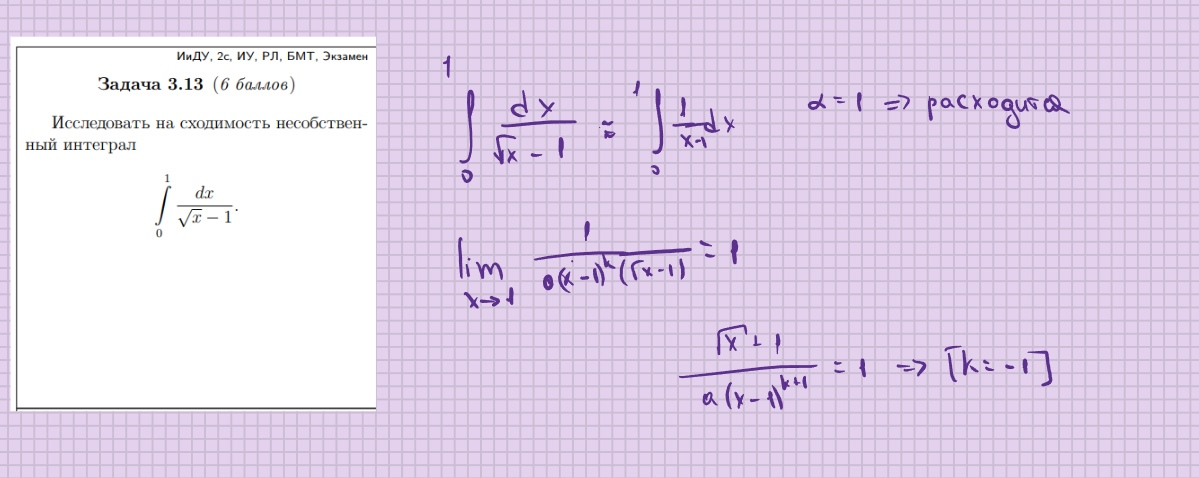 ИиДУ, 2с, ИУ, РЛ, БМТ, Экзамен
Задача 3.13 (6 баллов)
Исследовать на сходимость несобствен-
ный интеграл
∫₀¹ dx / (√x − 1).
∫₀¹ dx / (√x − 1) ≈ ∫₀¹ 1/(x−1) dx α = 1 => расходится
lim x→1 1 / (a(x−1)^k (√x−1)) = 1
(√x + 1) / (a(x−1)^(k+1)) = 1 => [k = −1]